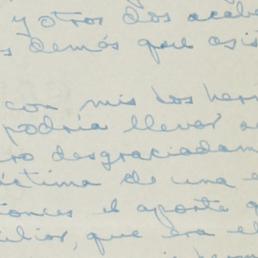 y otros dos acabe
s demás que asis
con mis dos herm
podría llevar a
ro desgraciadam
íctima de una e
tonces el aporte q
iliar, que era el